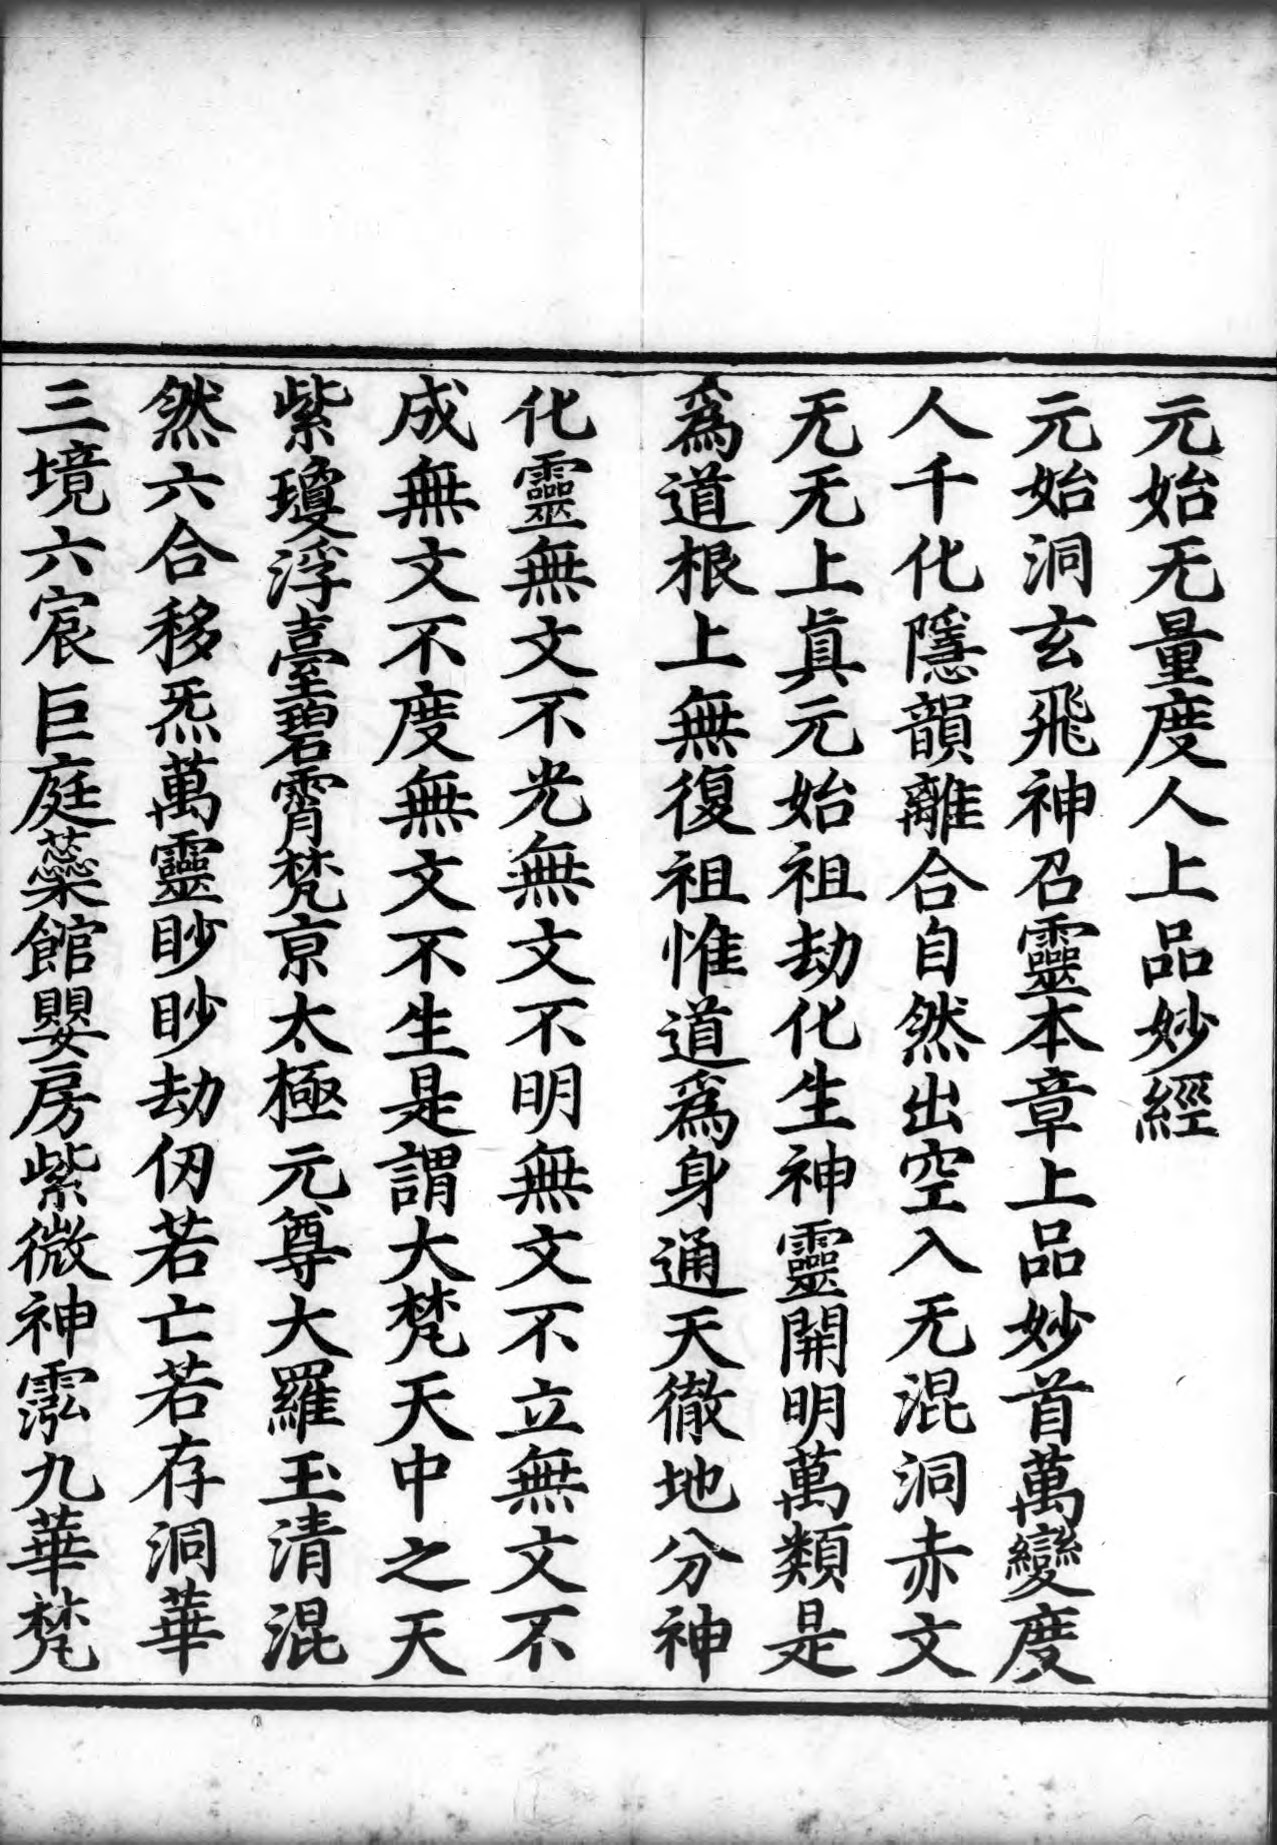 元始无量度人上品妙經
元始洞玄飛神召靈本章上品妙首萬變度
人千化隱韻離合自然出空入无混洞赤文
无无上真元始祖劫化生神靈開明萬類是
為道根上無復祖惟道為身通天徹地分神
化靈無文不光無文不明無文不立無文不
成無文不度無文不生是謂大梵天中之天
紫瓊浮臺碧霄梵京太極元尊大羅玉清混
然六合移炁萬靈眇眇劫仞若亡若存洞華
三境六宸巨庭蘂館䁝房紫微神霐九華梵